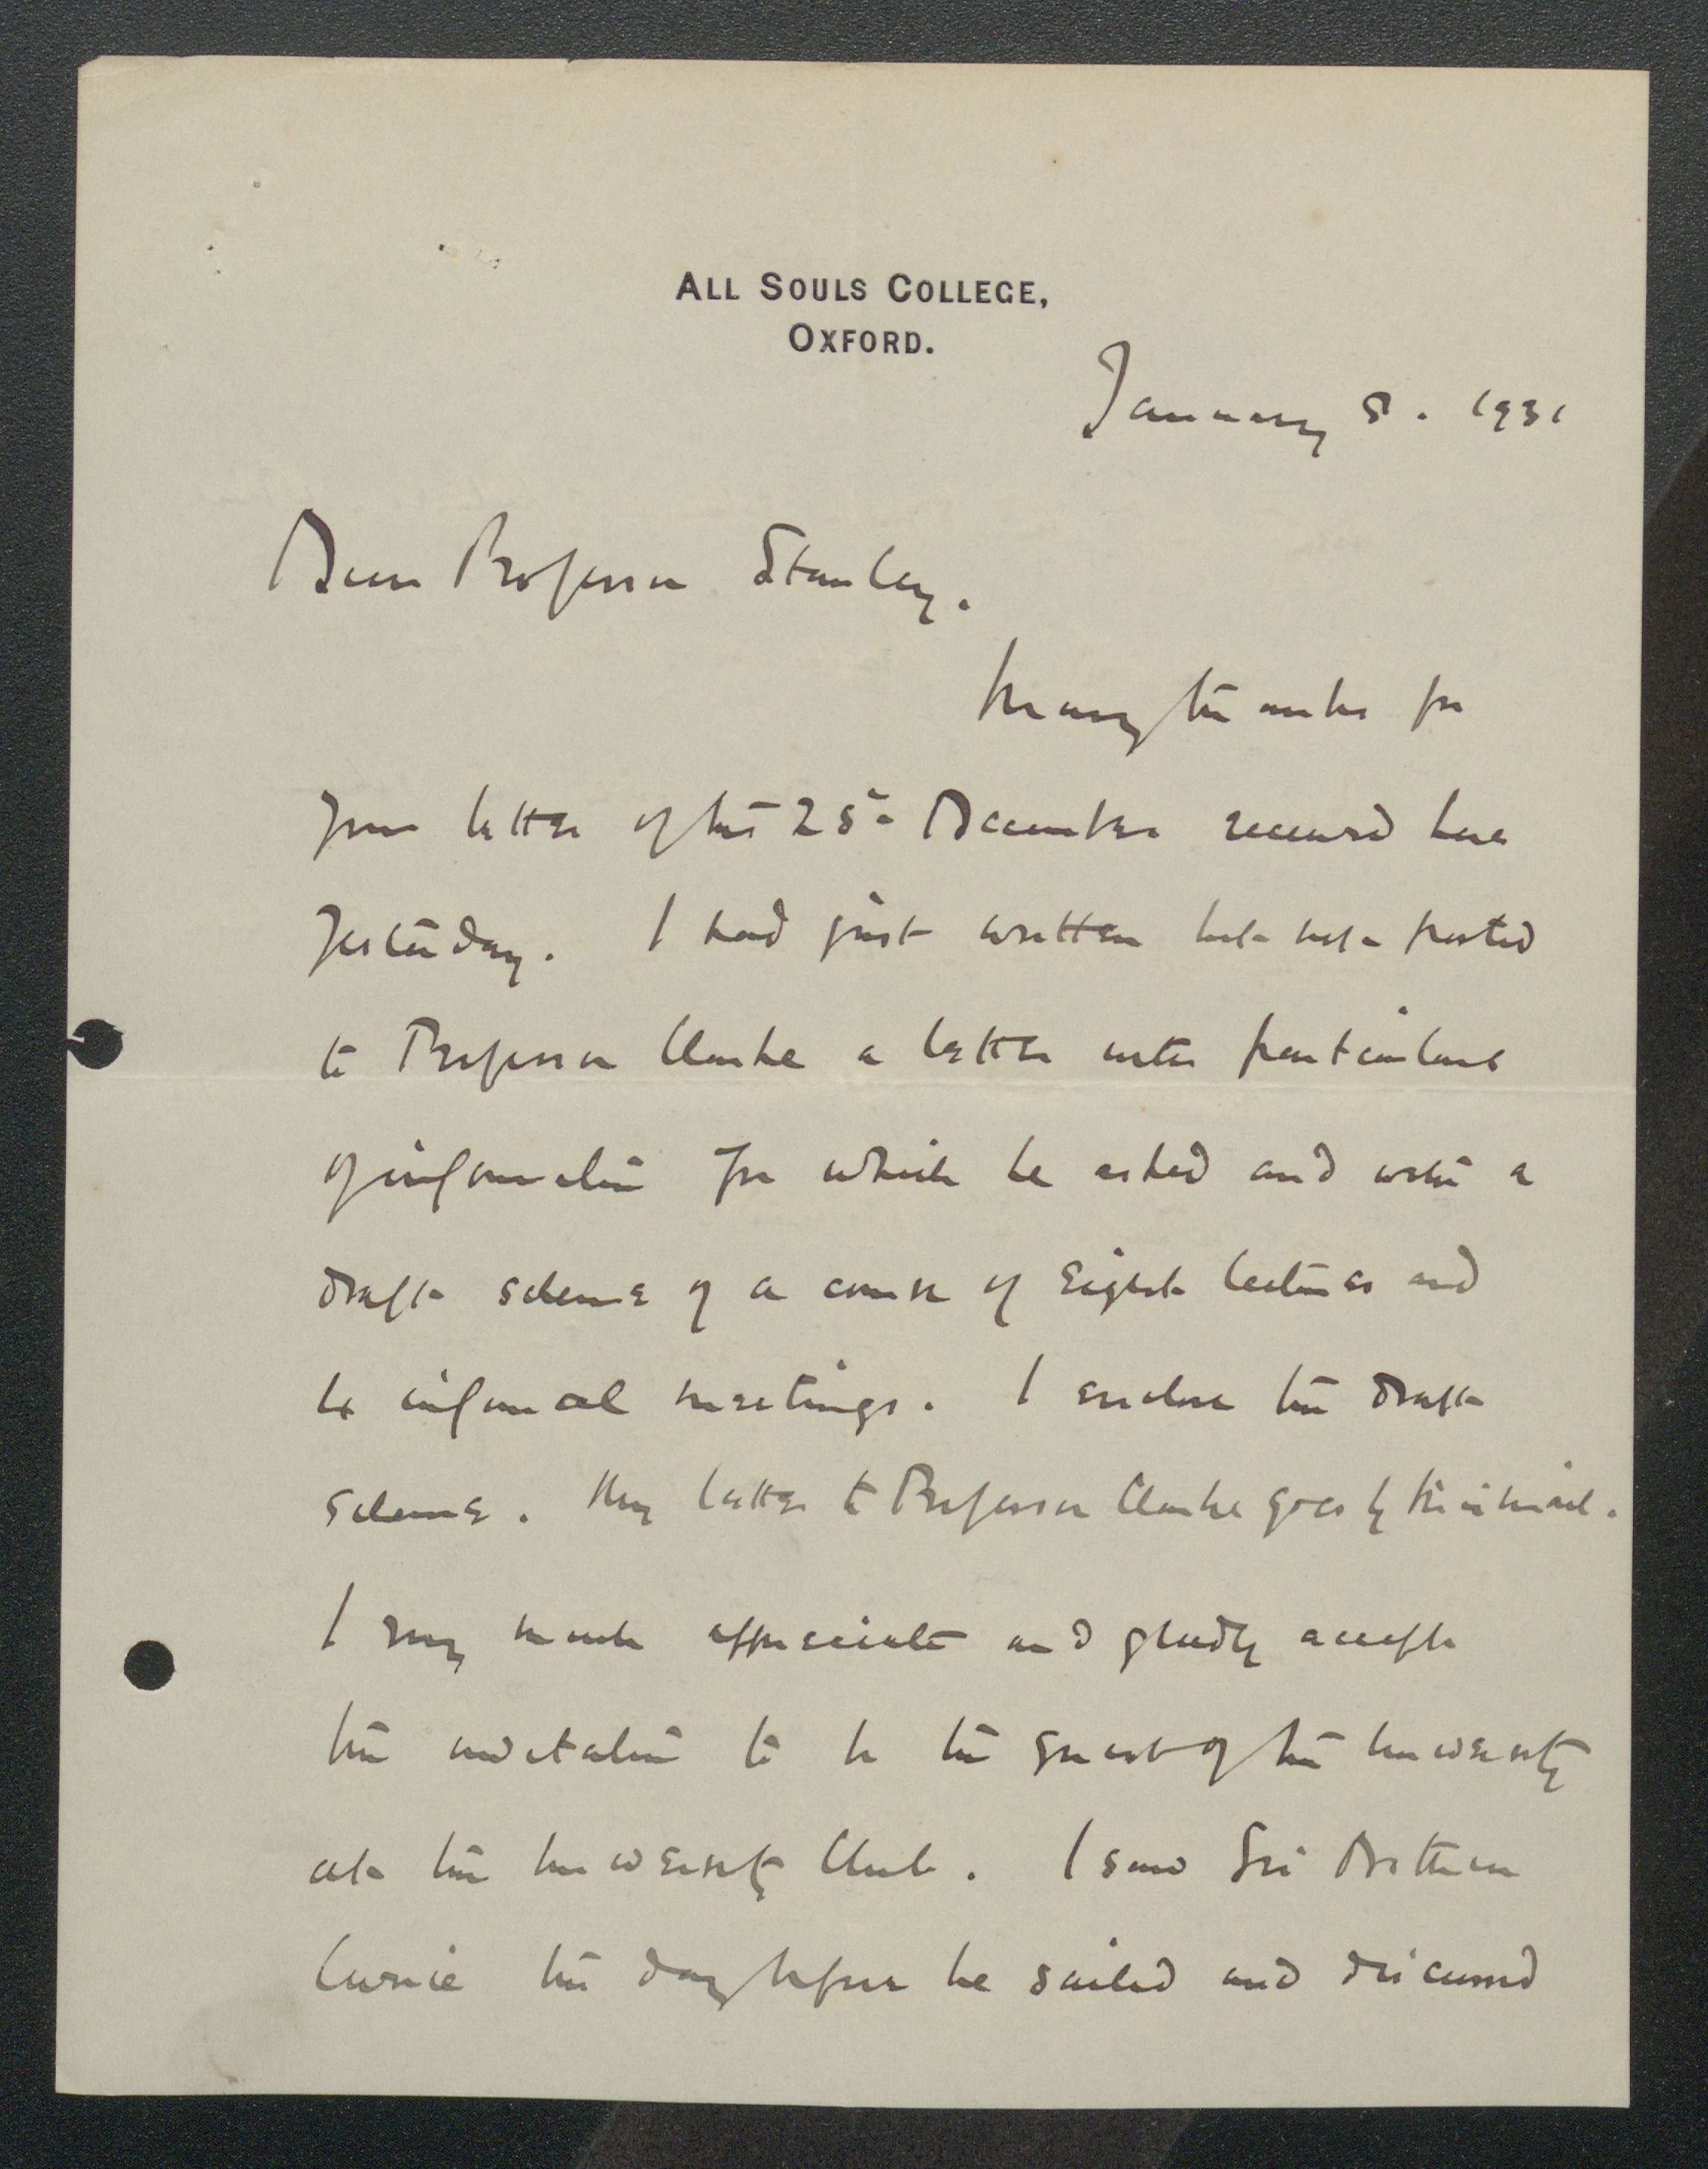 ALL SOULS COLLEGE,
OXFORD.
January 8. 1931
Dear Professor Stanley.
Many thanks for
your letter of the 25th December received here
yesterday. I had just written but not posted
to Professor Clarke a letter with particulars
of information for which he asked and with a
draft scheme of a course of eight lectures and
informal meetings. I enclose the draft
scheme. My letter to Professor Clarke goes by this mail.
I very much appreciate and gladly accept
the invitation to be the guest of the University
at the University Club. I saw Sir Arthur
Currie the day before he sailed and discussed